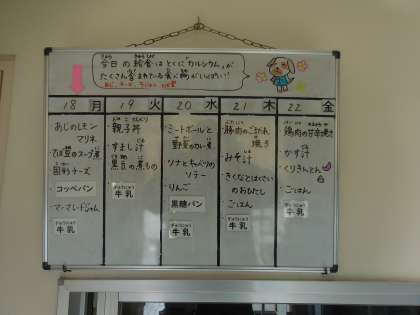 今日の給食はとくに"カルシウム"が
たくさん含まれている食べ物がいっぱい!!
18 月
あじのレモン
マリネ
固形チーズ
コッペパン
マーマレードジャム
牛乳
19 火
親子丼
すまし汁
黒豆の煮もの
牛乳
20 水
ミートボールと
野菜のカレー煮
ツナとキャベツの
ソテー
りんご
黒糖パン
牛乳
21 木
豚肉のごまだれ
焼き
みそ汁
きくなとはくさい
のおひたし
ごはん
牛乳
22 金
鶏肉の甘辛焼き
かす汁
くりきんとん
ごはん
牛乳